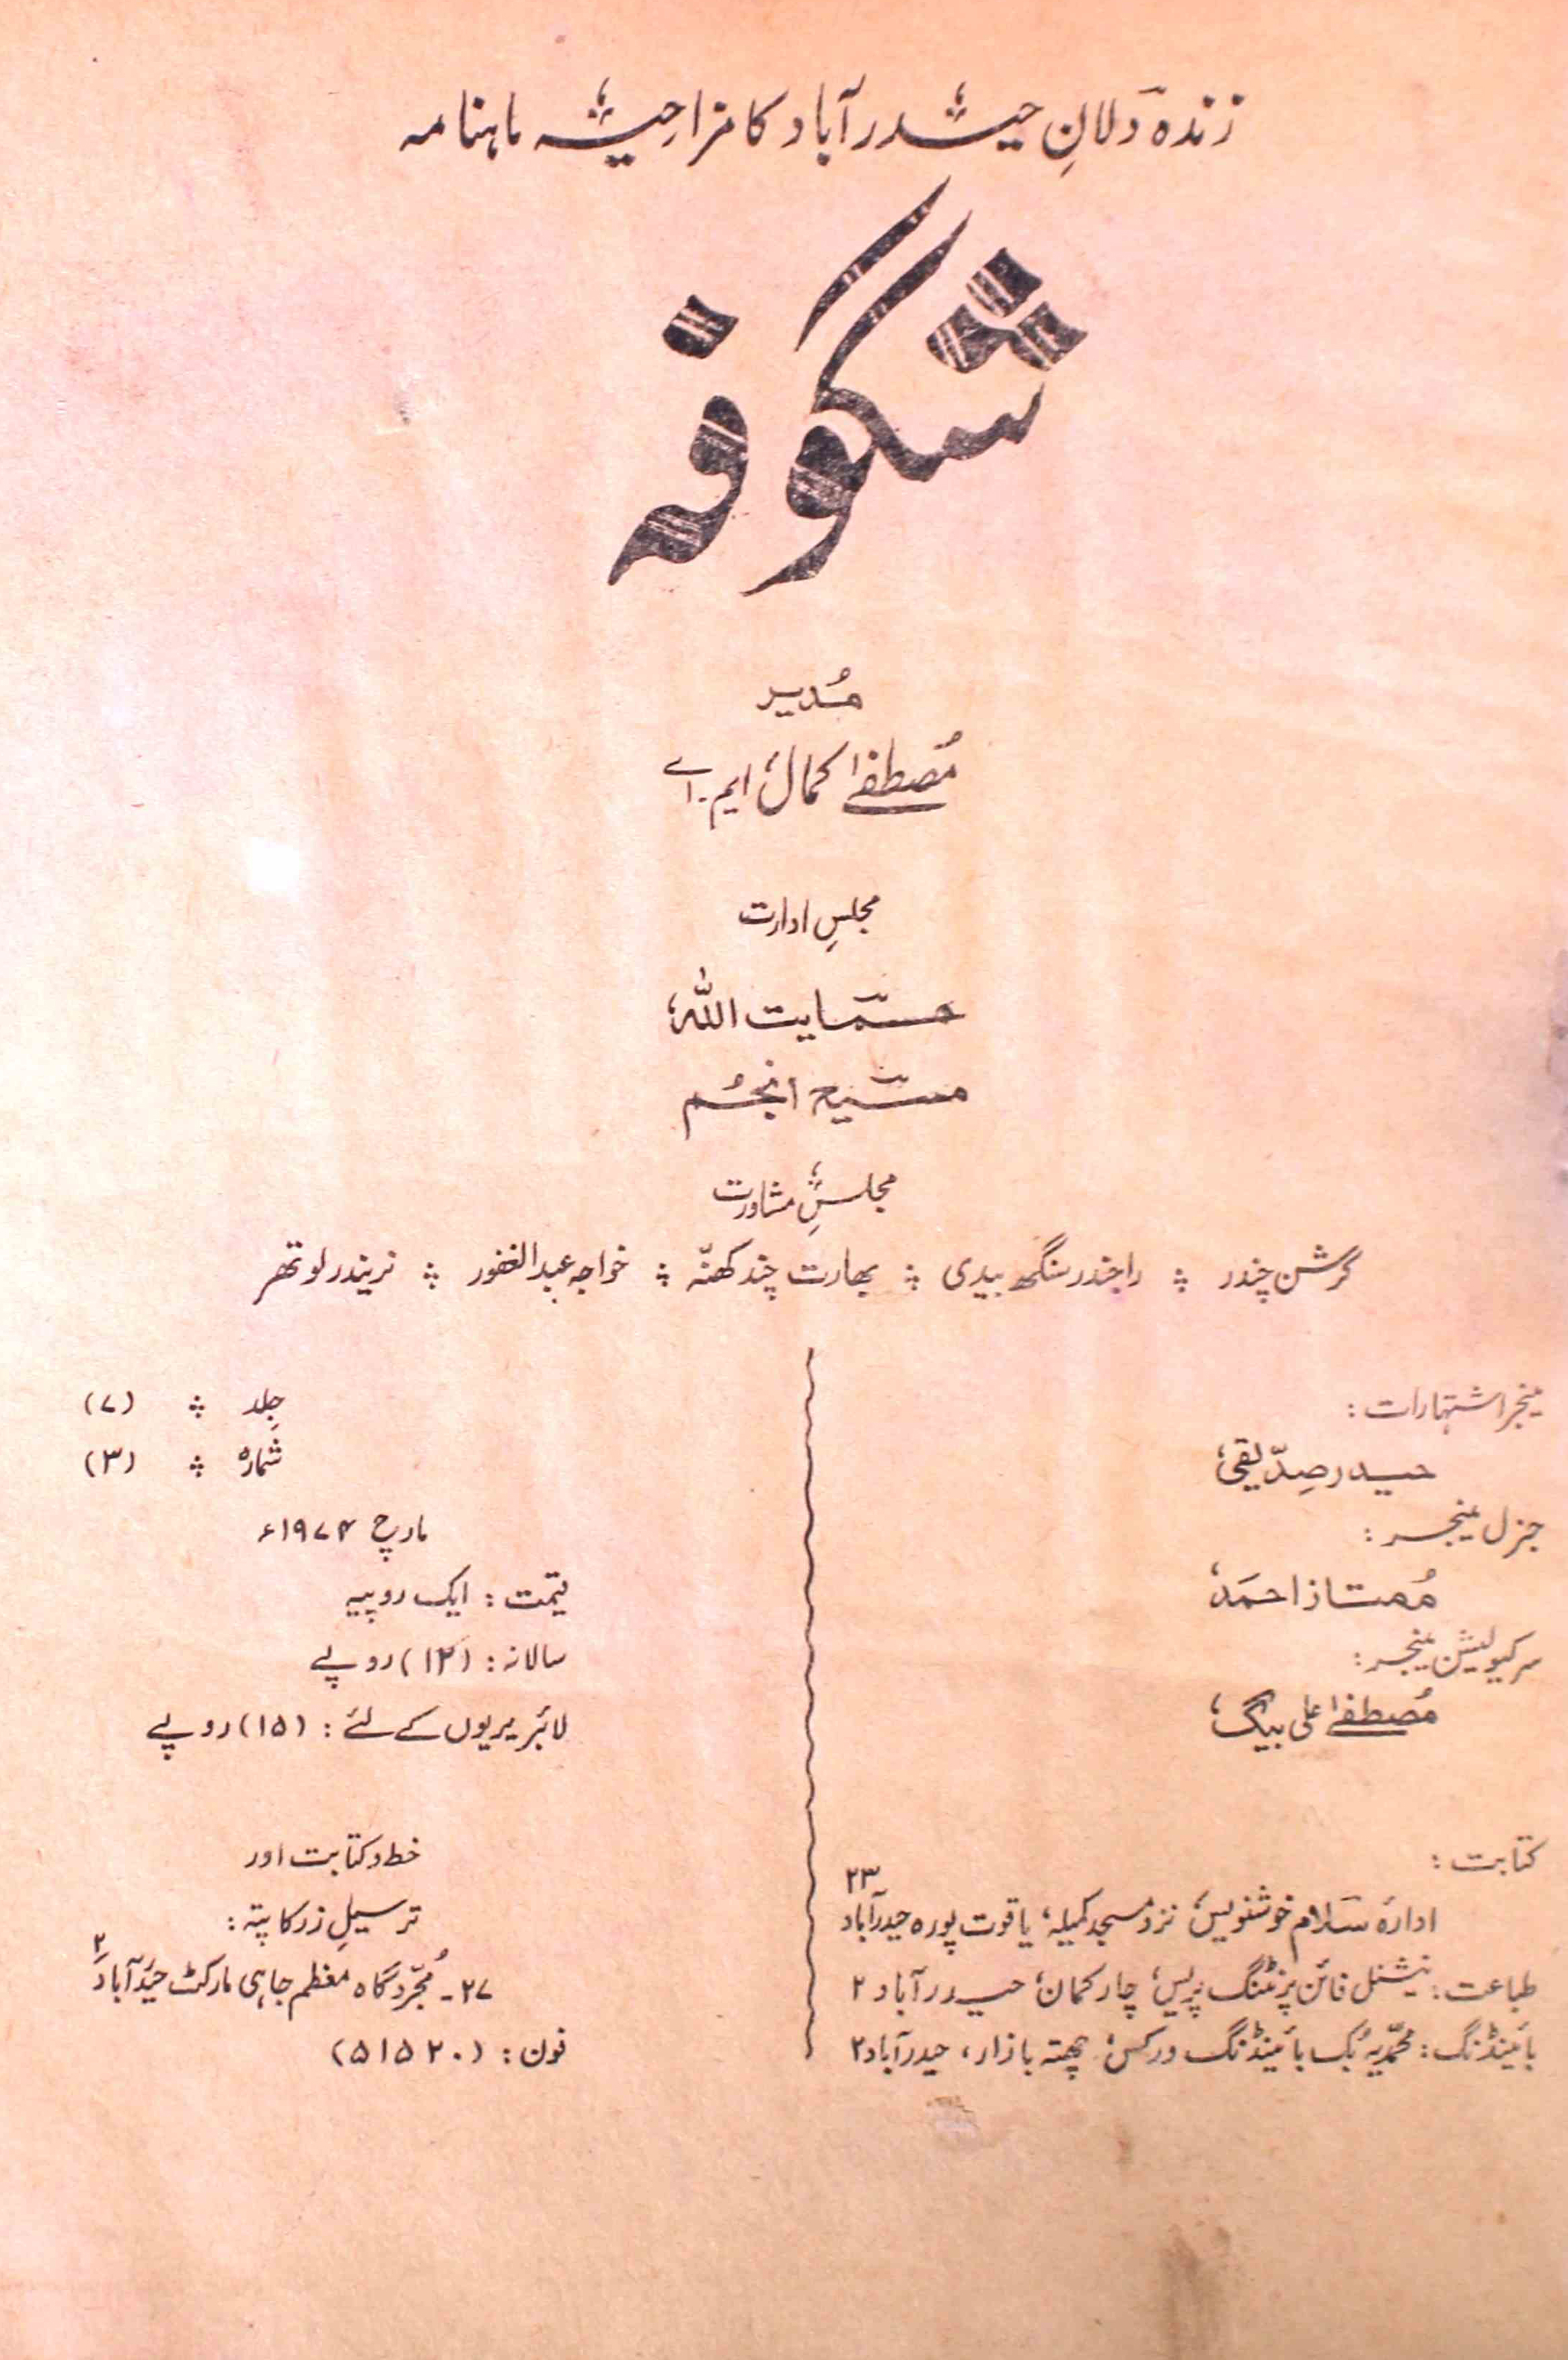 زندہ دلانِ حیدرآباد کا مزاحیہ ماہنامہ
شگوفہ
مُدیر
مُصطفیٰ کمال، ایم۔اے
مجلسِ ادارت
حمایت اللہ،
مسیح انجُم
مجلسِ مشاورت
کرشن چندر ؞ راجندر سنگھ بیدی ؞ بھارت چند کھنّہ ؞ خواجہ عبدالغفور ؞ نریندر لوتھر
منیجر اشتہارات :
حیدر صِدّیقی،
جنرل منیجر :
مُمتاز احمَد،
سرکیولیشن منیجر :
مُصطفیٰ علی بیگ،
کتابت :
ادارہ سَلام خوشنویس، نزد مسجد کمیلہ، یاقوت پورہ حیدرآباد ۲۳
طباعت : نیشنل فائن پرنٹنگ پریس، چار کمان، حیدرآباد ۲
بائینڈنگ : محمّدیہ بُک بائینڈنگ ورکس، چھتہ بازار، حیدرآباد ۲
جِلد ؞ (۷)
شمارہ ؞ (۳)
مارچ ۱۹۷۴ء
قیمت : ایک روپیہ
سالانہ : (۱۲) روپے
لائبریریوں کے لئے : (۱۵) روپے
خط و کتابت اور
ترسیلِ زر کا پتہ :
۲۷۔ مُجرّد گاہ معظم جاہی مارکٹ حیدرآباد ۲
فون : (۵۱۵۲۰)